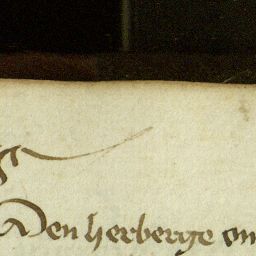 Den herberge on